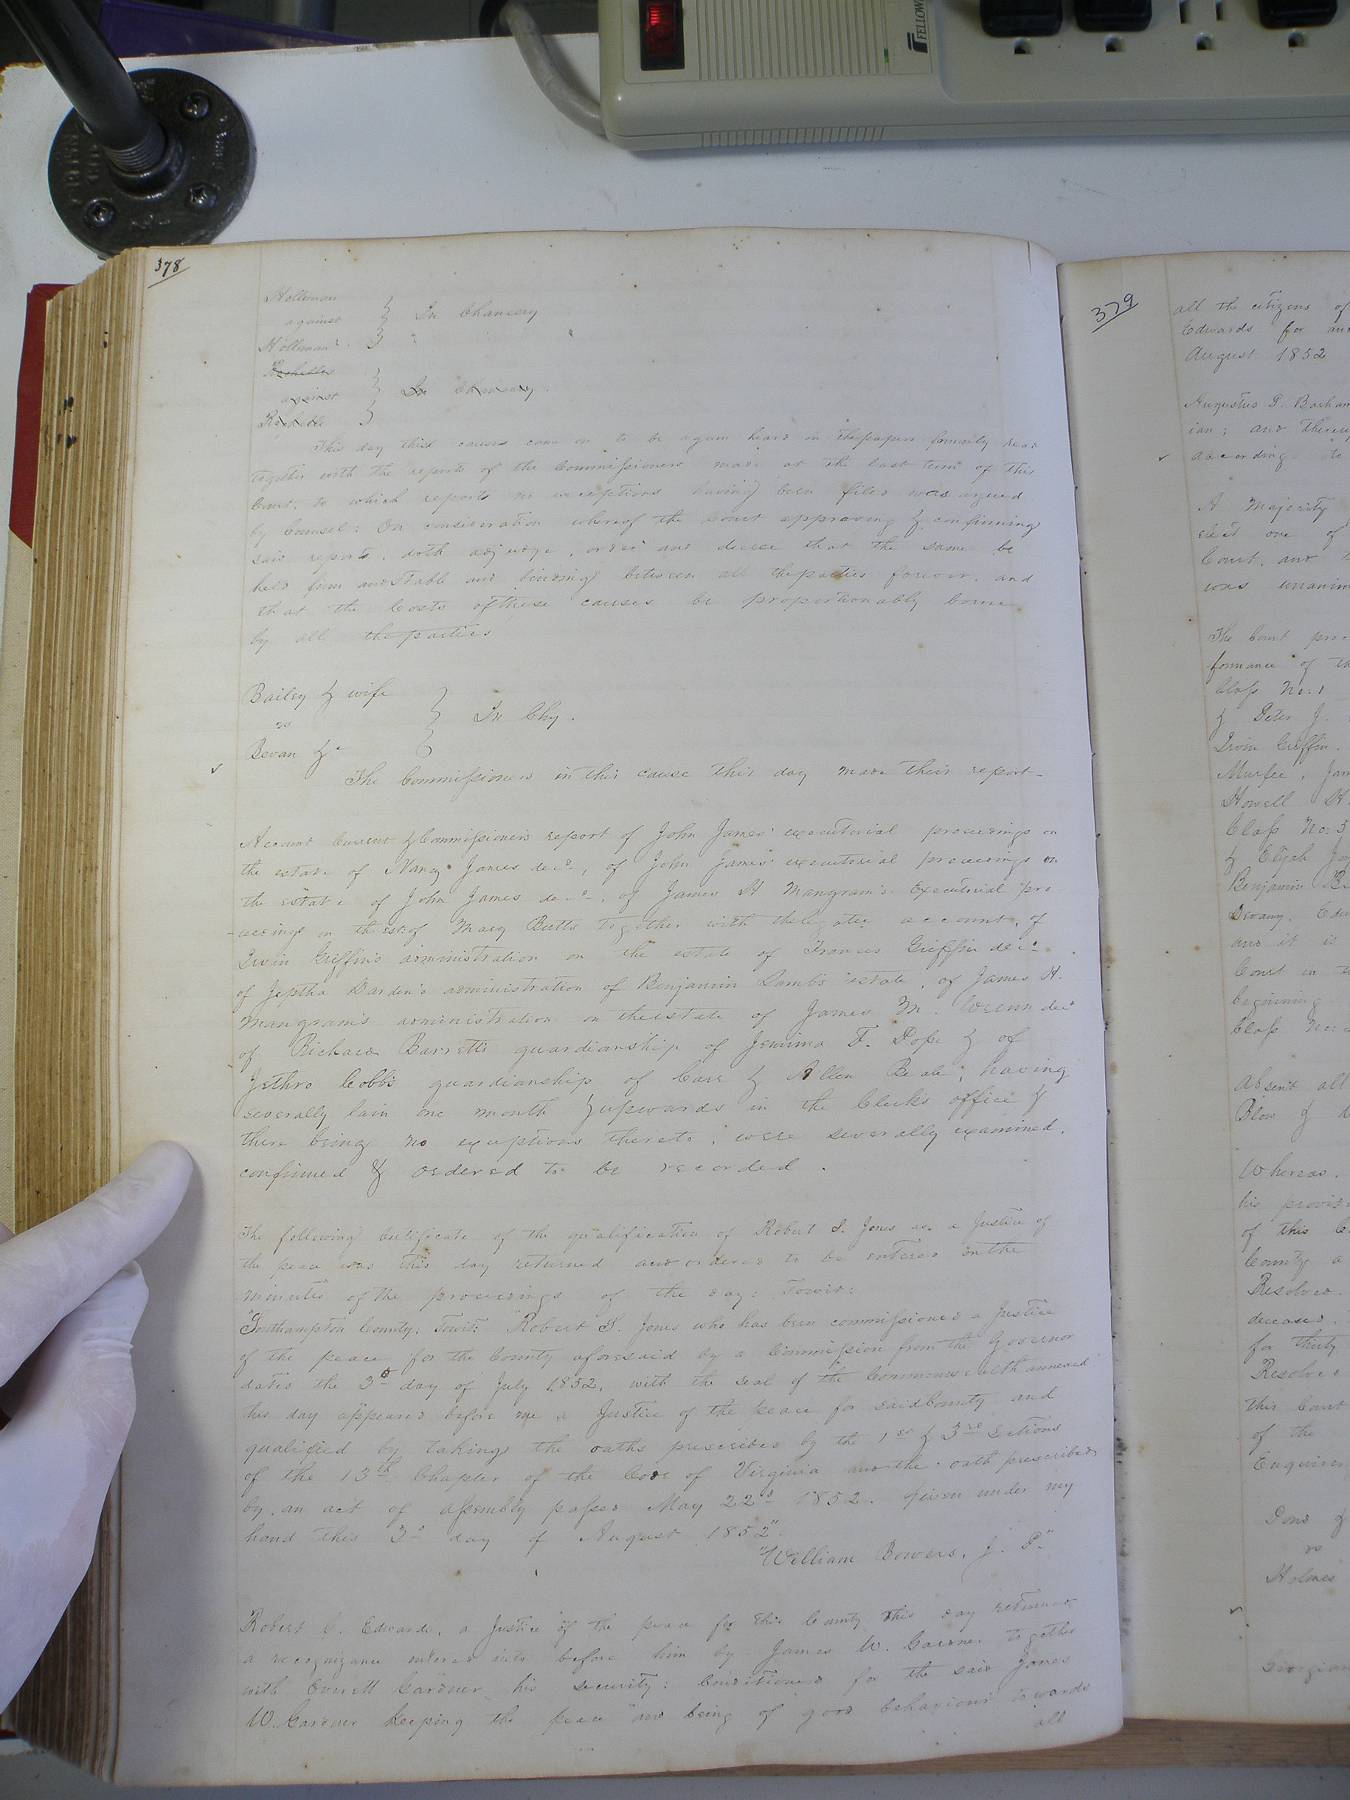 FELLOW
378
Holleman
against } In Chancery
Holleman
Rochelle
against } In Chancery.
Rochelle
This day this cause came on to be again heard on the papers formerly read
together with the reports of the Commissioners made at the last term of this
Court, to which reports no exceptions having been filed was argued
by Counsel: On consideration whereof the Court approving & confirming
said reports, doth adjudge, order and decree that the same be
held firm and stable and binding between all the parties forever, and
that the Costs of these causes be proportionably borne
by all the parties
Bailey & wife
vs } In Chy.
Bevan &c
The Commissioners in this cause this day made their report—
Account Current & Commissioners report of John James' executorial proceedings on
the estate of Nancy James decd., of John James' executorial proceedings on
the estate of John James decd., of James H Mangram's Executorial pro-
ceedings on the est: of Mary Butts together with the legatee account, of
Irvin Griffin's administration on the estate of Frances Griffin decd.
of Jeptha Darden's administration of Benjamin Lambs estate, of James H.
Mangram's administration on the estate of James M. Wrenn decd
of Richard Barrett's guardianship of Jemima F. Pope & of
Jethro Cobb's guardianship of Carr & Allen Beale; having
severally lain one month & upwards in the Clerk's office &
there being no exceptions thereto, were severally examined,
confirmed & ordered to be recorded.
The following Certificate of the qualification of Robert S. Jones as a Justice of
the peace was this day returned and ordered to be entered on the
minutes of the proceedings of the day: Towit:
"Southampton County, Towit: Robert S. Jones who has been commissioned a Justice
of the peace for the County aforesaid by a Commission from the Governor
dated the 3d day of July 1852, with the seal of the Commonwealth annexed
this day appeared before me a Justice of the peace for said County and
qualified by taking the oaths prescribed by the 1st & 3rd Sections
of the 13th Chapter of the Code of Virginia and the oath prescribed
by an act of assembly passed May 22d 1852. Given under my
hand this 3d day of August 1852".
"William Bowers, J. P."
Robert C. Edwards, a Justice of the peace for this County this day returned
a recognizance entered into before him by James W. Gardner together
with Everett Gardner his security: Conditioned for the said James
W. Gardner keeping the peace and being of good behaviour towards
all
379
all the citizens of
Edwards for and
August 1852
Augustus G.
ian; and there
according to
A Majority
elect one of
Court, and
was unanim
The Court pro
formance of
Class No: 1
& Peter J.
Irvin Griffin.
Murfee, Jam
Howell
Class No: 3
& Elijah
Benjamin
and it is
Court in
beginning
Class No:
Absent all
Blow &
Whereas,
his provi
of this C
County a
Resolved.
deceased.
for thirty
Resolved
this Court
of the
Enquirer
&
vs
Holmes